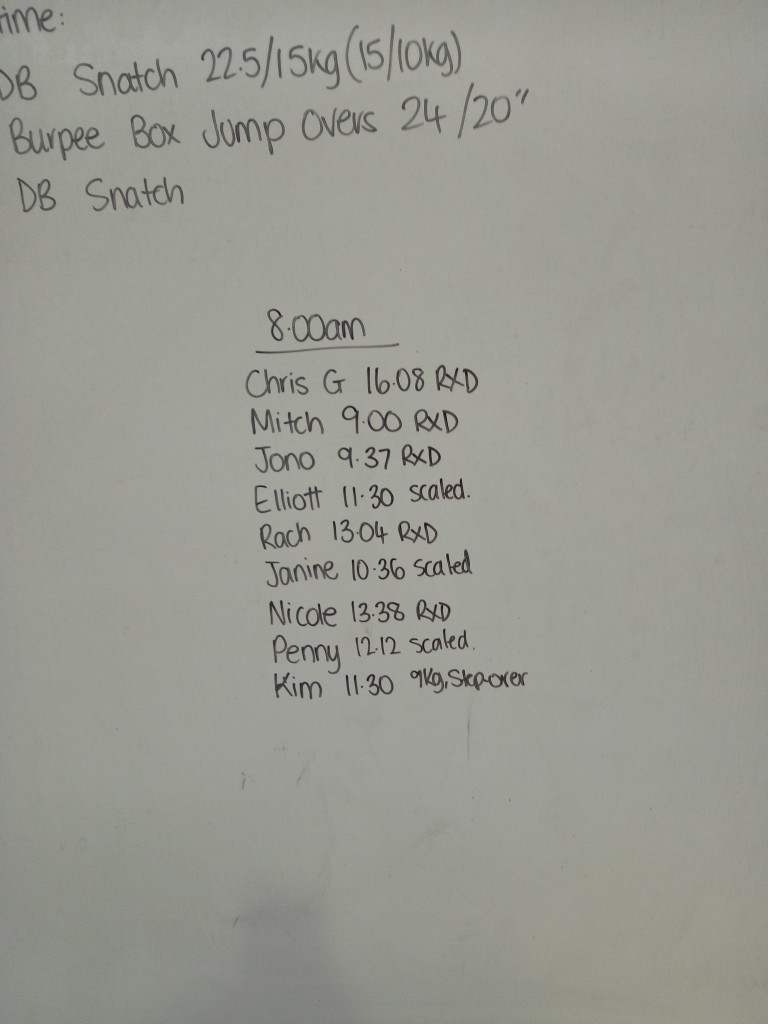 ime:
DB Snatch 22.5/15kg (15/10kg)
Burpee Box Jump Overs 24/20"
DB Snatch
8.00am
Chris G 16.08 RXD
Mitch 9.00 RXD
Jono 9.37 RXD
Elliott 11.30 scaled.
Rach 13.04 RXD
Janine 10.36 scaled
Nicole 13.38 RXD
Penny 12.12 scaled.
Kim 11.30 9kg, Stepover